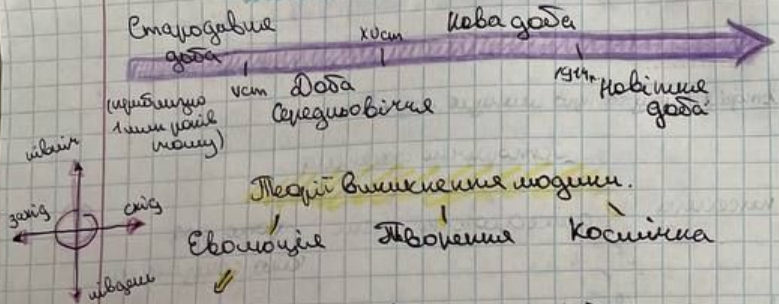 Стародавня доба
XVст
Нова доба
(приблизно 1 млн років тому)
Vст
Доба Середньовіччя
1914р
Новітня доба
північ
захід
схід
південь
Теорії виникнення людини.
Еволюція
Творення
Космічна